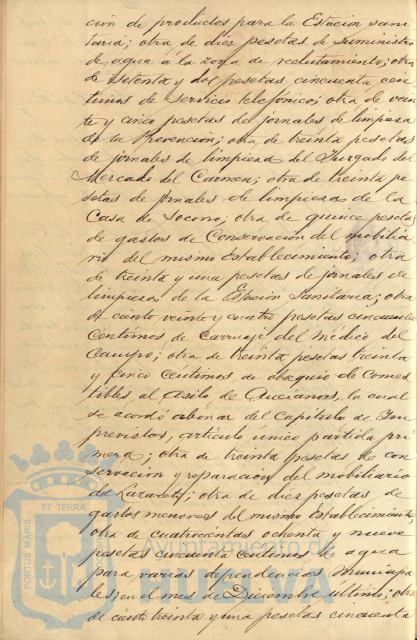 ción de productos para la Estacion sani
taria; otra de diez pesetas de suministro
de agua á la zona de reclutamiento; otra
de setenta y dos pesetas cincuenta cen
timos de servicio telefónico; otra de vein
te y cinco pesetas del jornales de limpieza
de la Prevención; otra de treinta pesetas
de jornales de limpieza del Juzgado del
Mercado del Carmen; otra de treinta pe
setas de jornales de limpieza de la
Casa de Socorro; otra de quince pesetas
de gastos de Conservacion del mobilia
rio del mismo establecimiento; otra
de treinta y una pesetas de jornales de
limpieza de la Estacion Sanitaria; otra
de ciento veinte y cuatro pesetas cincuenta
centimos de carruaje del Médico del
Campo; otra de treinta pesetas treinta
y cinco centimos de obsequio de comes
tibles al Asilo de Ancianos, la cual
se acordó abonar del Capitulo de Im
previstos, articulo unico partida pri
mera; otra de treinta pesetas de con
servacion y reparacion del mobiliario
del Lazareto; otra de diez pesetas de
gastos menores del mismo Establecimiento
otra de cuatrocientas ochenta y nueve
pesetas cincuenta centimos de agua
para varias dependencias municipa
les en el mes de Diciembre ultimo; otra
de ciento treinta y una pesetas cincuenta
PORTUS MARIS ET TERRA
Ayuntamiento de
HUELVA